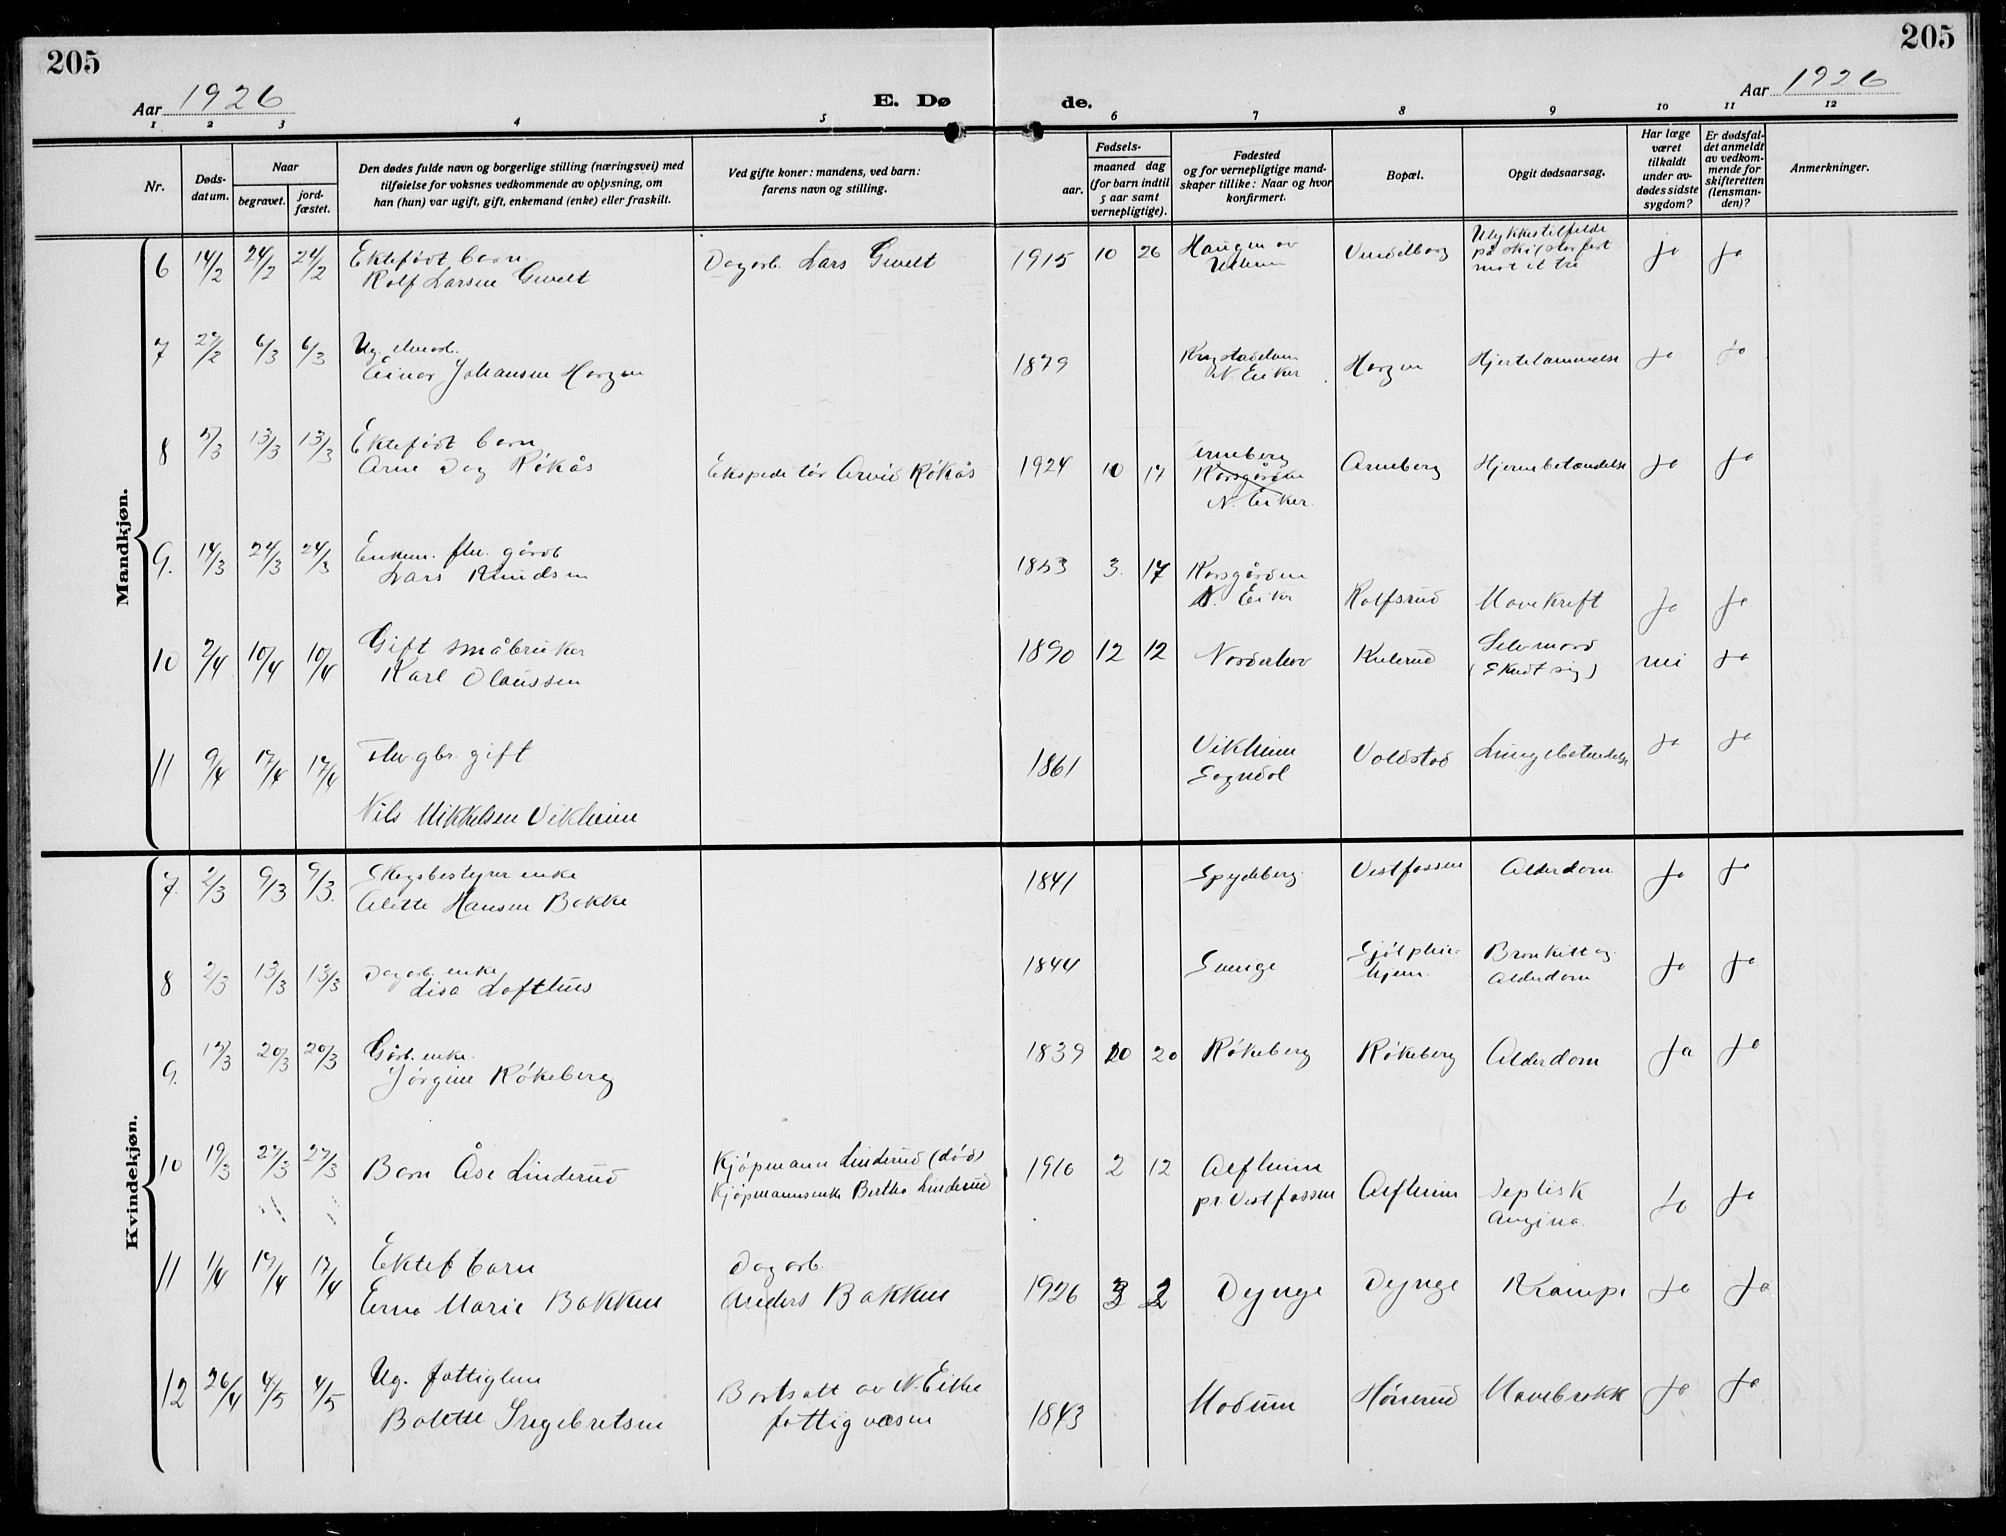 205
205
Aar 1926
E. Dø
de.
Aar 1926
1 2 3 4 5 6 7 8 9 10 11 12
Nr.
Døds-
datum.
Naar
begravet.
jord-
fæstet.
Den dødes fulde navn og borgerlige stilling (næringsvei) med
tilføielse for voksnes vedkommende av oplysning, om
han (hun) var ugift, gift, enkemand (enke) eller fraskilt.
Ved gifte koner: mandens, ved barn:
farens navn og stilling.
Fødsels-
aar.
maaned dag
(for barn indtil
5 aar samt
vernepligtige).
Fødested
og for vernepligtige mand-
skaper tillike: Naar og hvor
konfirmert.
Bopæl.
Opgit dødsaarsag.
Har læge
været
tilkaldt
under av-
dødes sidste
sygdom?
Er dødsfal-
det anmeldt
av vedkom-
mende for
skifteretten
(lensman-
den)?
Anmerkninger.
Mandkjøn.
6 14/2 24/2 24/2 Ektefødt barn
Rolf Larsen
Dagarb. Lars
1915 10 26 Haugen av
Ulykkestilfelde
på ski
mot et tre
ja ja
7 6/3 6/3 Ug.
Einar Johansen Horgen
1879
N. Eiker
Horgen Hjertelammelse ja ja
8 5/3 13/3 13/3 Ektefødt barn
Arne Dag Røkås
Ekspeditør Arvid Røkås
1924 10 17 Arneberg
Korsgården
N. Eiker
Arneberg Hjernebetændelse ja ja
9. 14/3 24/3 24/3 Enkem. fhv. gårdb
Lars Knudsen
1853 3. 17 Korsgården
N. Eiker
Rolfsrud Mavekreft ja ja
10 2/4 10/4 10/4 Gift småbruker
Karl Olaussen
1890 12 12 Norderhov Kulerud Selvmord
(Skudt sig)
nei ja
11 9/4 17/4 17/4 Fhv gbr. gift
Nils Mikkelsen Vikheim
1861 Vikheim
Sogndal
Voldstad Lungebetendelse ja ja
Kvindekjøn.
7. 2/3 9/3 9/3. enke
Alette Hansen Bakke
1841 Spydeberg. Vestfossen Alderdom ja ja
8 2/3 13/3 13/3 Dagarb. enke
Lisa Lofthus
1844 Svenge
hjem
Bronkitt og
Alderdom
ja ja
9. 20/3 20/3 Gårb. enke
Jørgine Røkeberg
1839 10 20 Røkeberg Røkeberg Alderdom ja ja
10 19/3 27/3 27/3 Barn Åse Linderud
Kjøpmann Linderud (død)
Kjøpmannsenke Bertha Linderud
1916 2 12 Alfheim
pr. Vestfossen
Alfheim Septisk
Angina.
ja ja
11 1/4 17/4 17/4 Ektef barn
Erna Marie Bakken
Dagarb.
Anders Bakken
1926 3 2 Dynge Dynge Krampe ja ja
12 26/4 4/5 4/5 Ug. fattiglem
Bolette Ingebretsen
Bortsatt av N. Eiker
fattigvæsen
1843 Modum Hønerud Mavebrokk ja ja